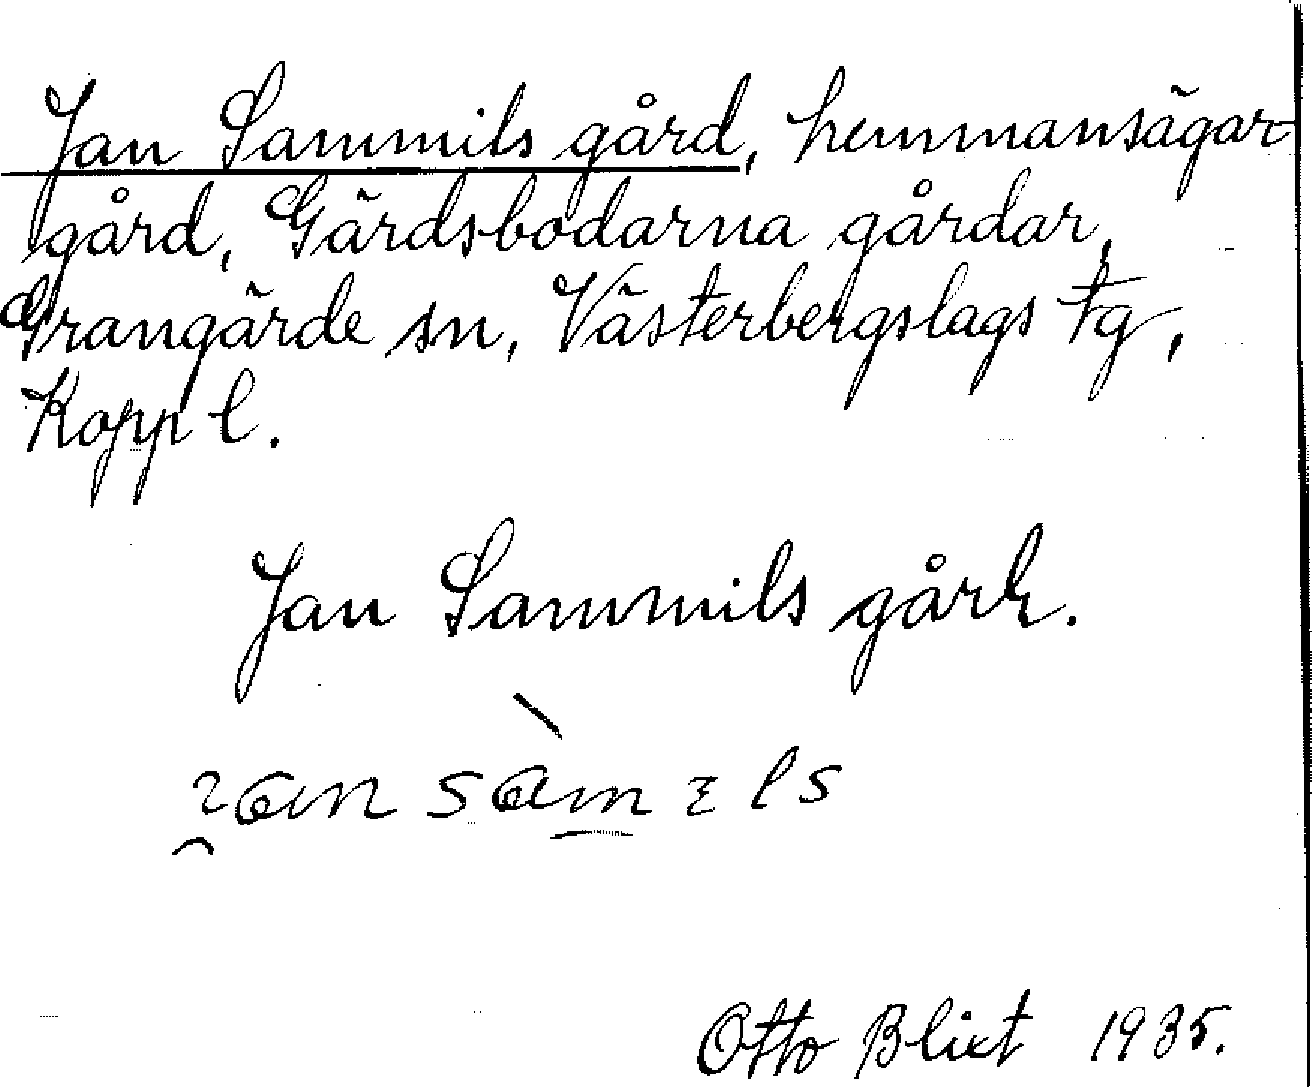 Jan Sammils gård, hemmansägar-
gård, Gärdsbodarna gårdar,
Grangärde sn, Västerbergslags fg,
Kopp l.
Jan Sammils gårk.
Otto Blixt 1935.